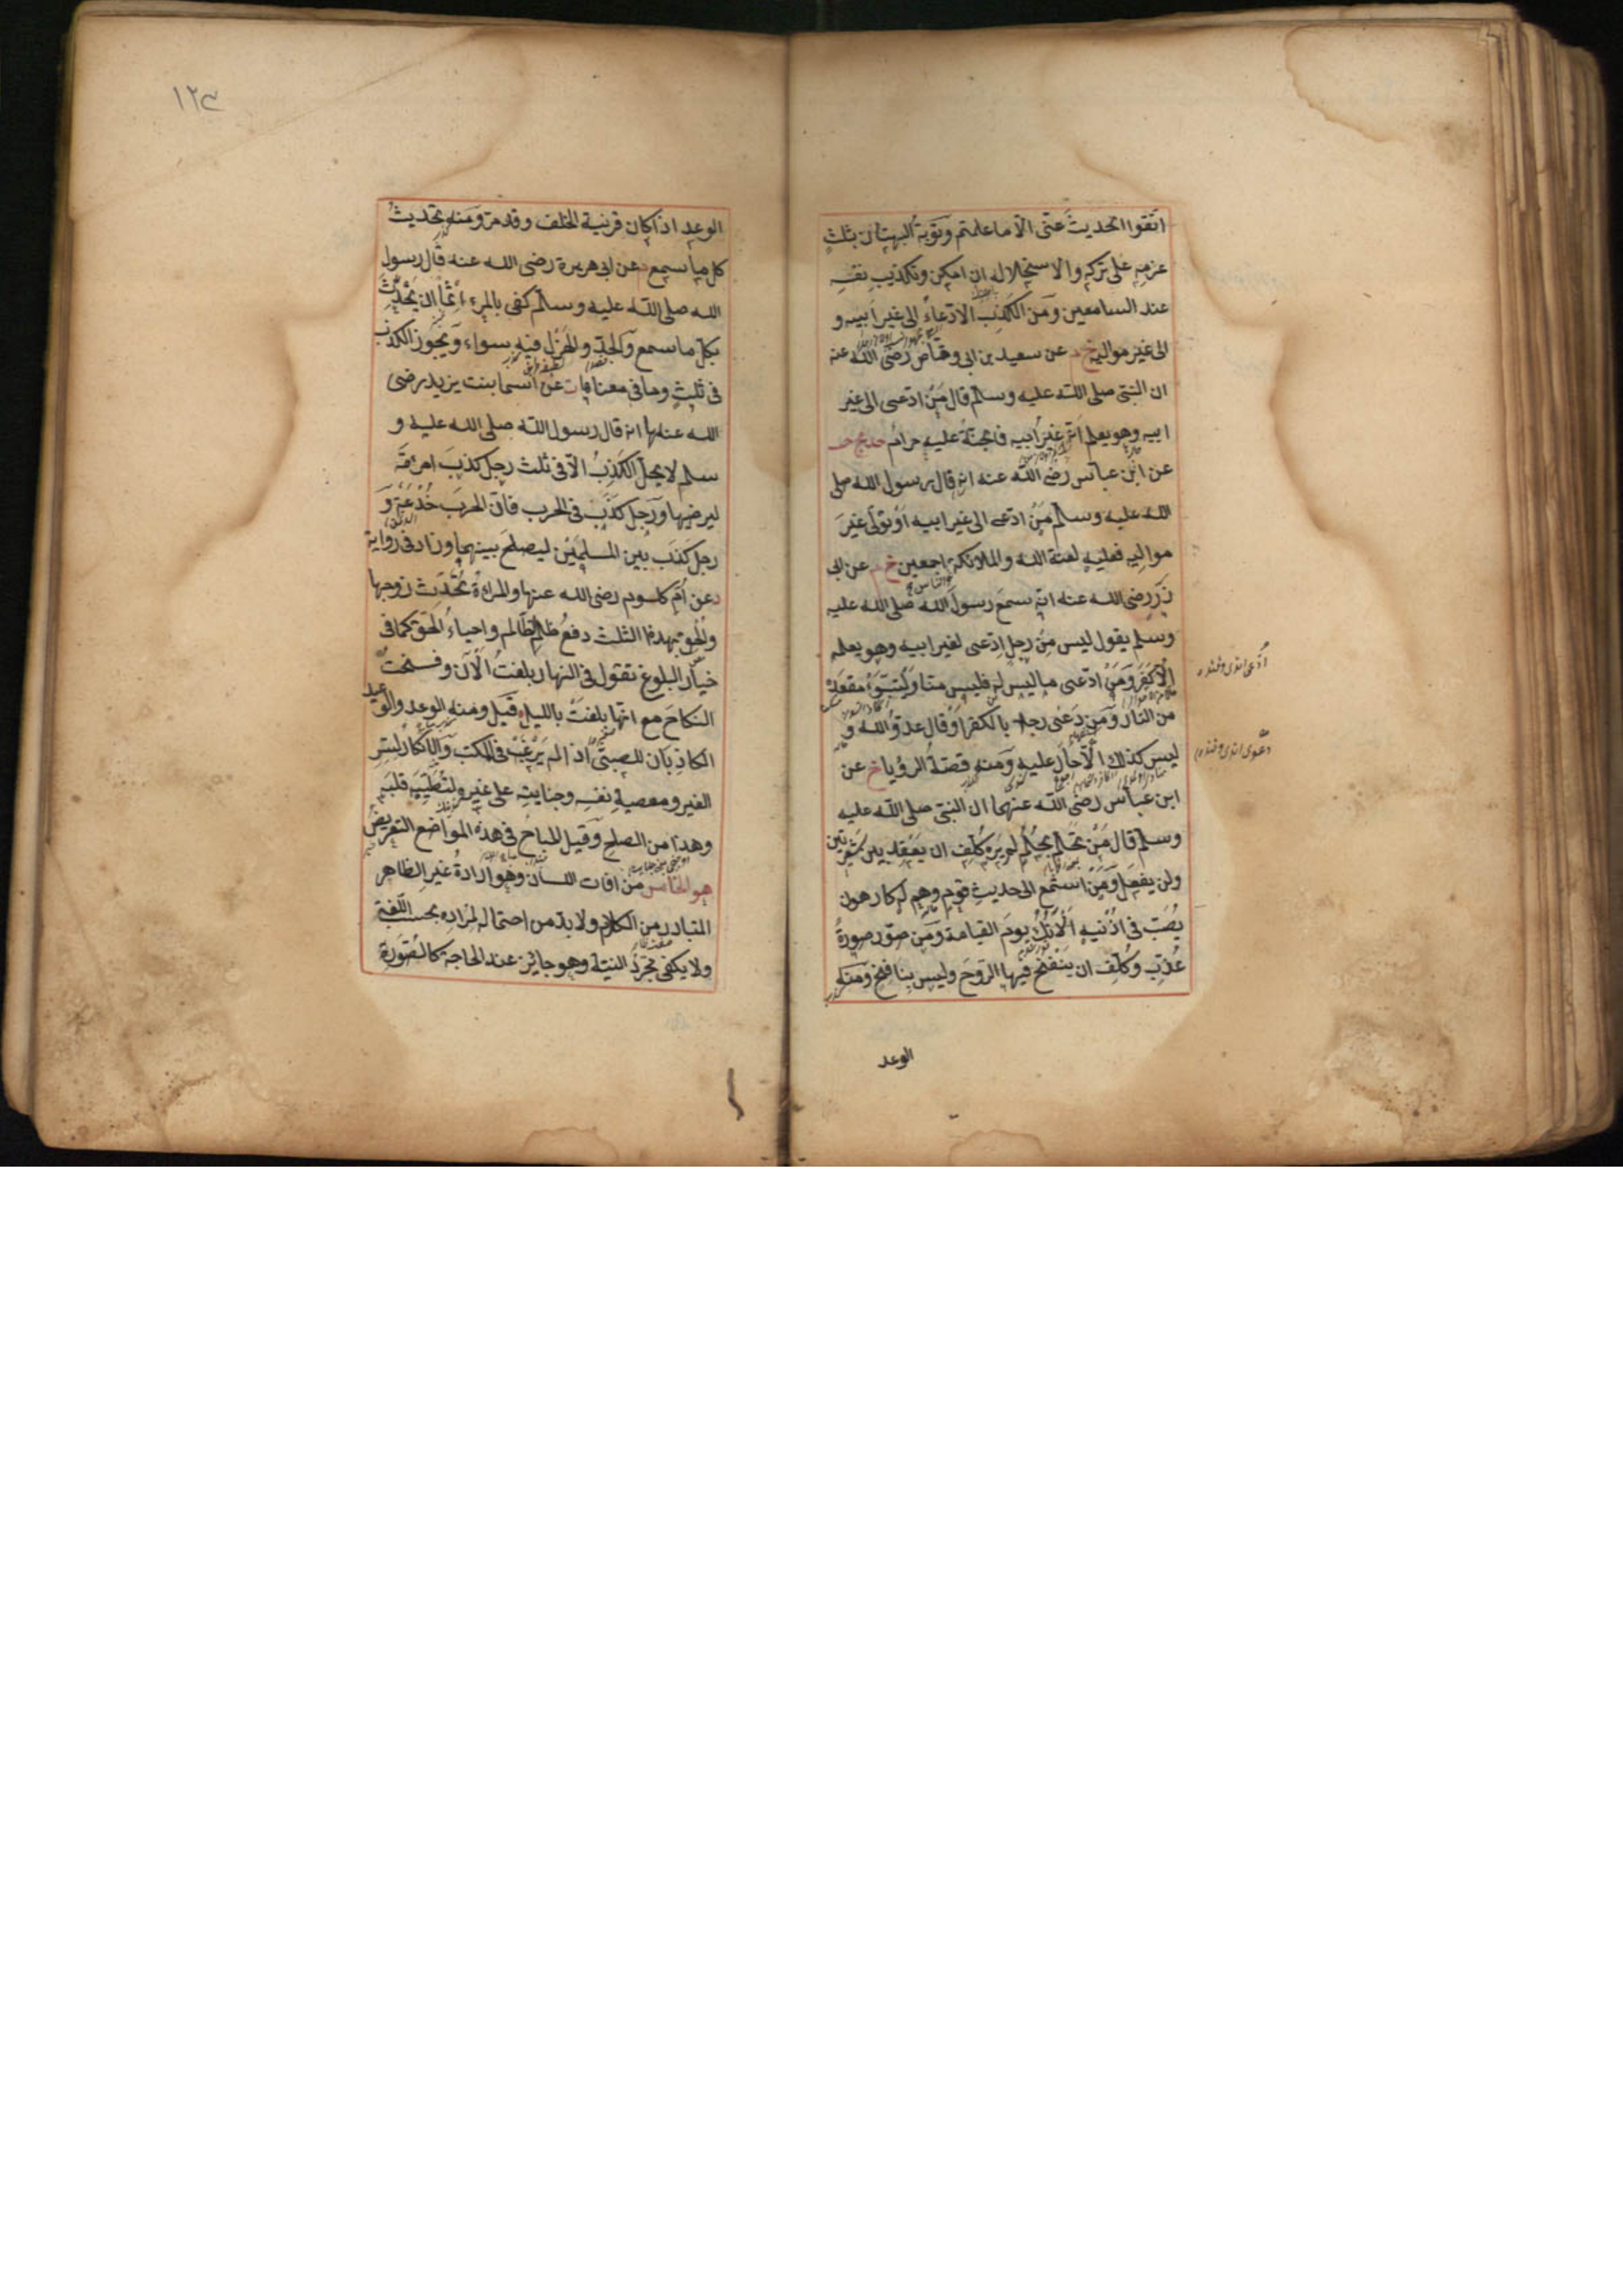 اتقوا الحديث عنى الا ما علمتم وتوبة البهتان بثلث
عزمه على تركه والاستحلال له ان امكن وتكذيب نفسه
عند السامعين ومن الكذب الادعاء الى غير ابيه و
الى غير مواليه خ م عن سعيد بن ابى وقاص رضى الله عنه
ان النبى صلى الله عليه وسلم قال من ادعى الى غير
ابيه وهو يعلم انه غير ابيه فالجنة عليه حرام حد مج حب
عن ابن عباس رضى الله عنه انه قال رسول الله صلى
الله عليه وسلم من ادعى الى غير ابيه او تولى غير
مواليه فعليه لعنة الله والملائكة اجمعين خ م عن ابى
والناس
ذر رضى الله عنه انه سمع رسول الله صلى الله عليه
وسلم يقول ليس من رجل ادعى لغير ابيه وهو يعلم
الا كفر ومن ادعى ما ليس له فليس منا وليتبوأ مقعده
من النار ومن دعى رجلا بالكفر او قال عدو الله و
ليس كذلك الا حار عليه ومنه قصة الرؤيا خ عن
ابن عباس رضى الله عنهما ان النبى صلى الله عليه
وسلم قال من تحلم بحلم لم يره كلف ان يعقد بين شعيرتين
ولن يفعل ومن استمع الى حديث قوم وهم له كارهون
يصب فى اذنيه الآنك يوم القيامة ومن صور صورة
عذب وكلف ان ينفخ فيها الروح وليس بنافخ ومنه
الوعد
١٢٤
الوعد اذا كان قرنية الخلف وقد مر ومنه تحديث
كل ما سمع م عن ابى هريرة رضى الله عنه قال رسول
الله صلى الله عليه وسلم كفى بالمرء اثما ان يحدث
بكل ما سمع والجد والهزل فيه سواء ويجوز الكذب
فى ثلث وما فى معناها ت عن اسما بنت يزيد رضى
الله عنها انه قال رسول الله صلى الله عليه و
سلم لا يحل الكذب الا فى ثلث رجل كذب امرأته
ليرضيها ورجل كذب فى الحرب فان الحرب خدعة و
رجل كذب بين المسلمين ليصلح بينهما وزاد فى رواية
د عن ام كلسوم رضى الله عنها والمرأة تحدث زوجها
والحق بهذا الثلث دفع ظلم الظالم واحياء الحق كما فى
خيار البلوغ تقول فى النهار بلغت الآن وفسخت
النكاح مع انها بلغت بالليل قيل ومنه الوعد والوعيد
الكاذبان للصبى اذا لم يرغب فى المكتب والانكار لستر
الغير ومعصية نفسه وجنايته على غيره ولتطييب قلبه
وهذا من الصلح وقيل المباح فى هذه المواضع التعريض
هو الخامس من افات اللسان وهو ارادة غير الظاهر
المتبادر من الكلام ولا بد من احتمال لمراده بحسب اللغة
ولا يكفى مجرد النية وهو جائز عند الحاجة كالصورة